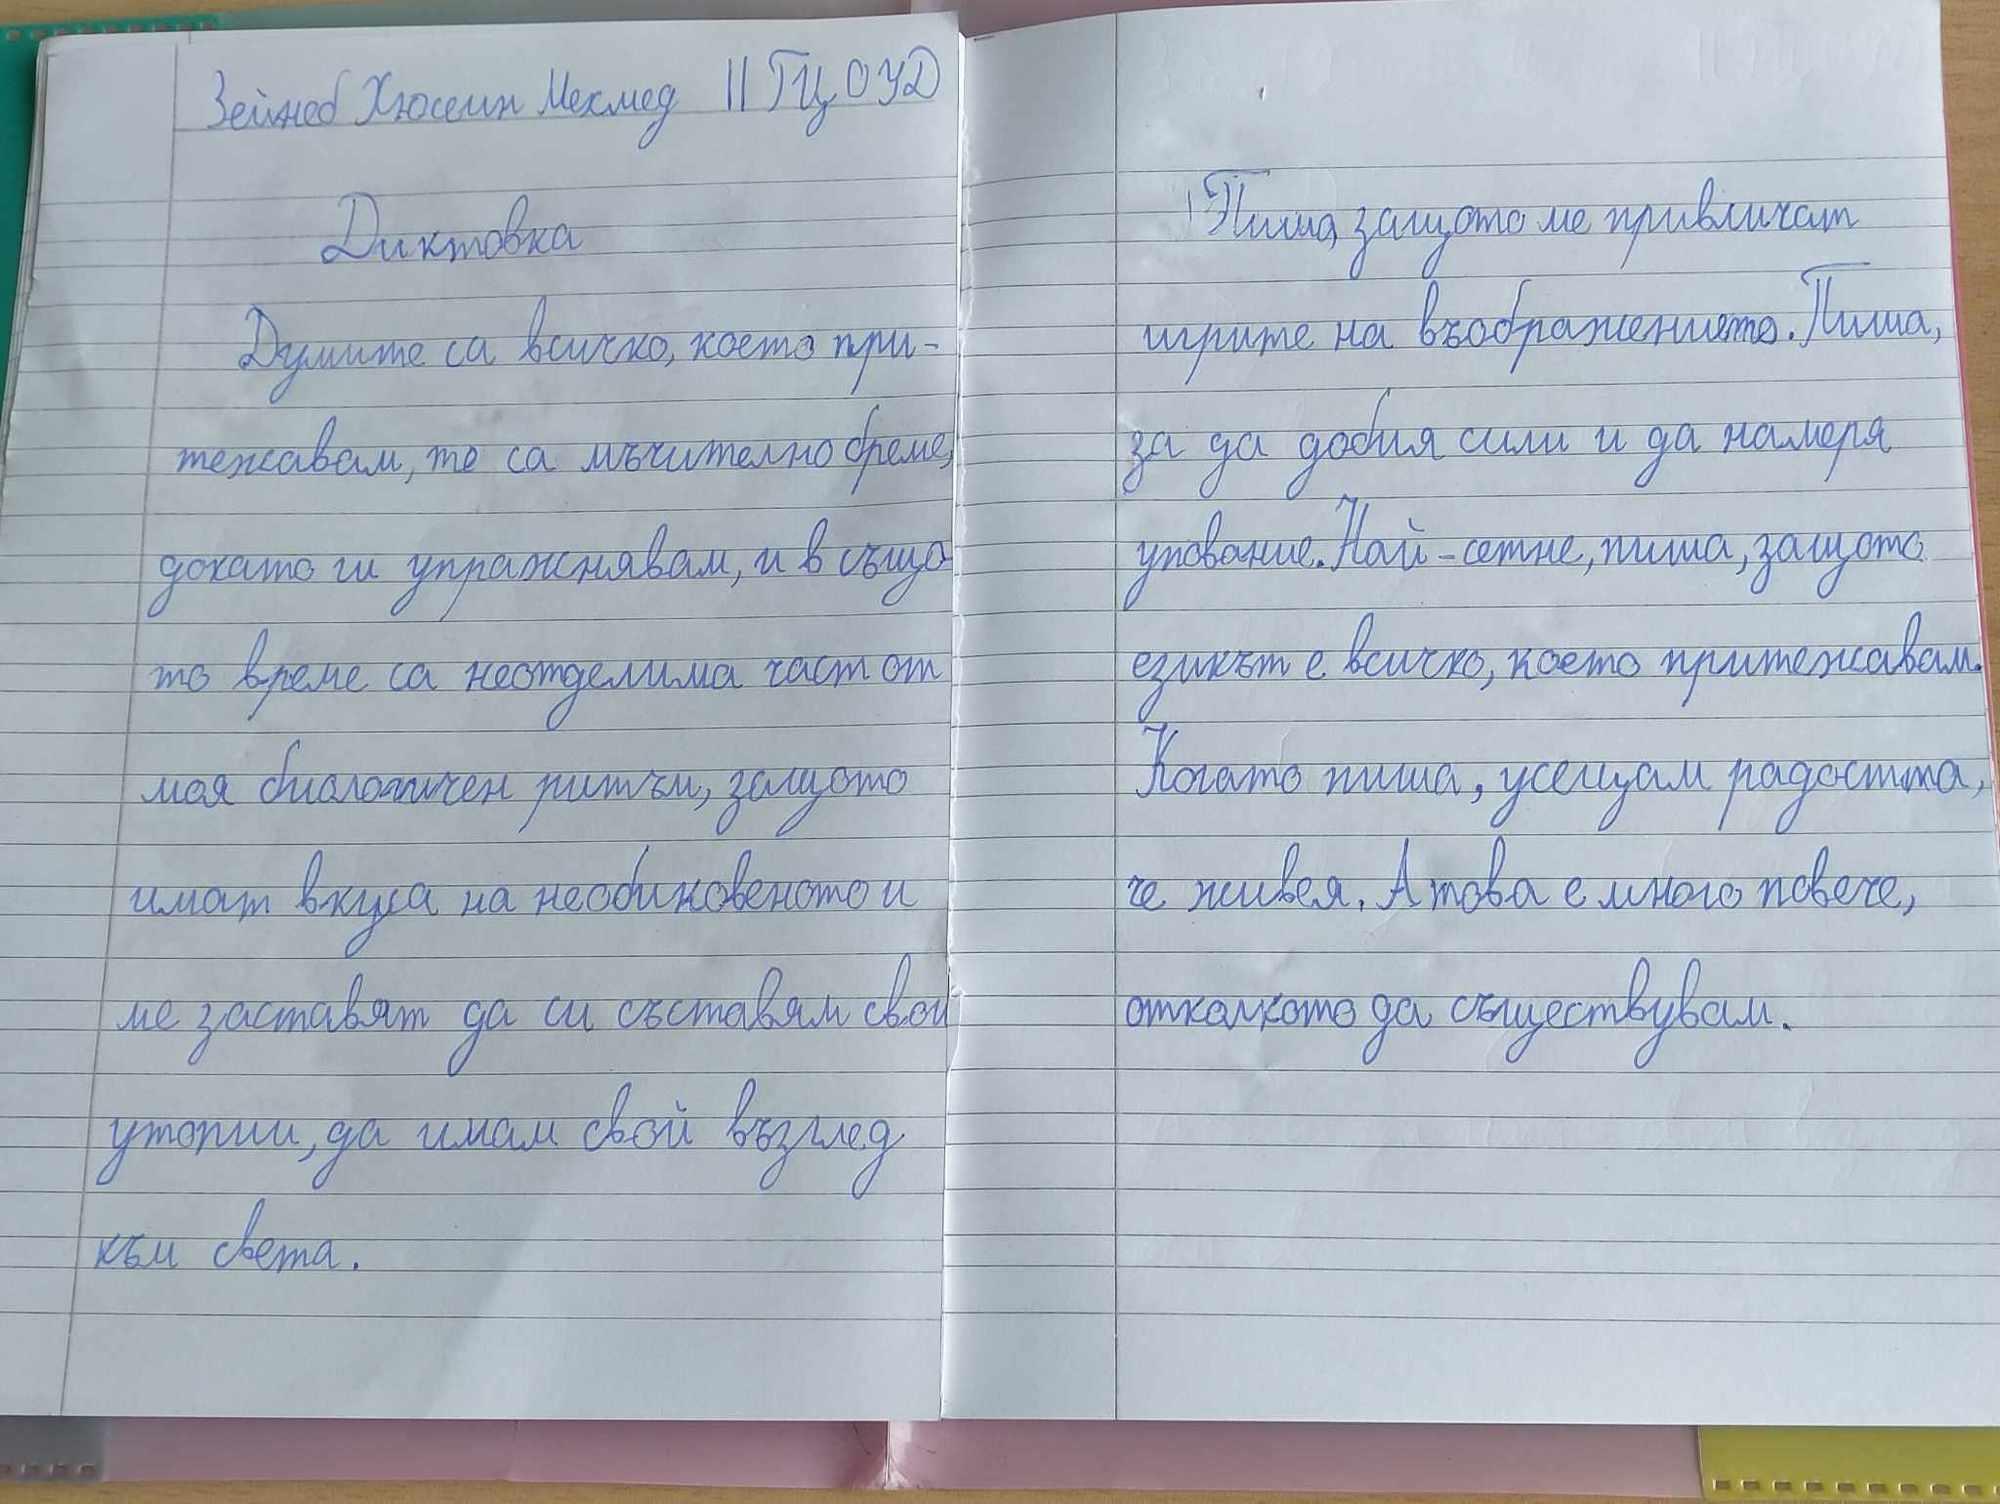 Зейнеб Хюсеин Мехмед II ГЦОУД
Диктовка
Думите са всичко, което при-
тежавам, те са мъчително бреме,
докато ги упражнявам, и в също
то време са неотделима част от
моя биологичен ритъм, защото
имат вкуса на необикновеното и
ме заставят да си съставям свои
утопии, да имам свой възглед
към света.
Пиша, защото ме привличат
игрите на въображението. Пиша,
за да добия сили и да намеря
упование. Най-сетне, пиша, защото
езикът е всичко, което притежавам.
Когато пиша, усещам радостта,
че живея. А това е много повече,
отколкото да съществувам.